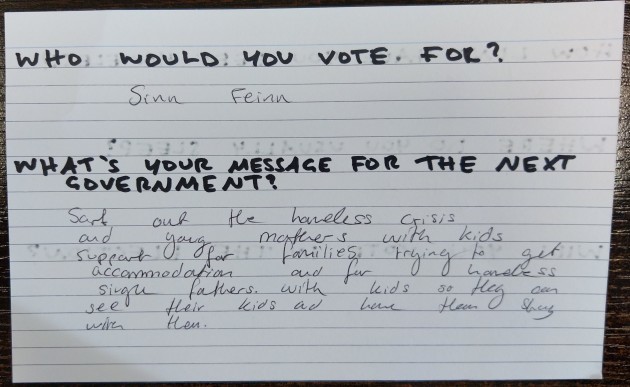 WHO WOULD YOU VOTE FOR?
Sinn Feinn
WHAT'S YOUR MESSAGE FOR THE NEXT
GOVERNMENT?
Sort out the homeless crisis
and young mothers with kids
support for families trying to get
accommodation and for homeless
single fathers. with kids so they can
see their kids ad have them stay
with them.